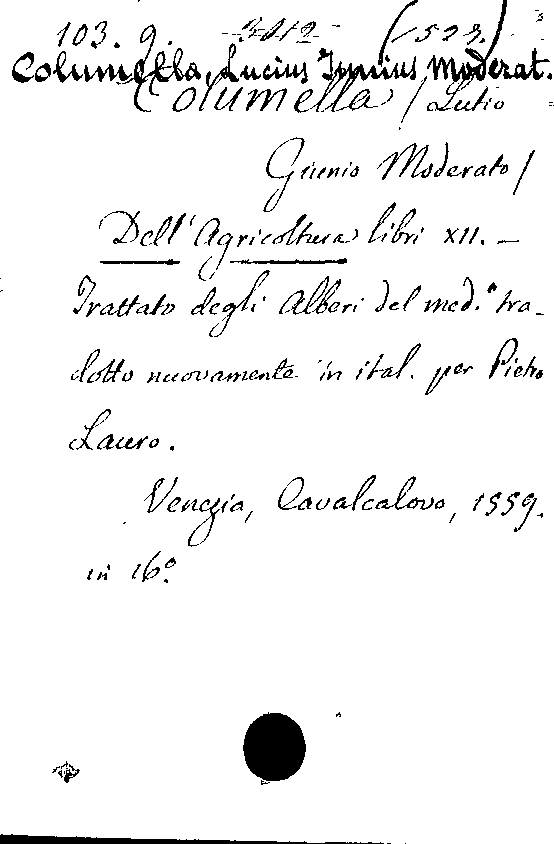 103. 9. 3412 (1523.)
Columella, Lucius Junius Moderat.
Columella / Lutio
Giunio Moderato /
Dell' Agricoltura libri XII. —
Trattato degli Alberi del med.º tra-
dotto nuovamente in ital. per Pietro
Lauro.
Venezia, Cavalcalovo, 1559.
in 16º